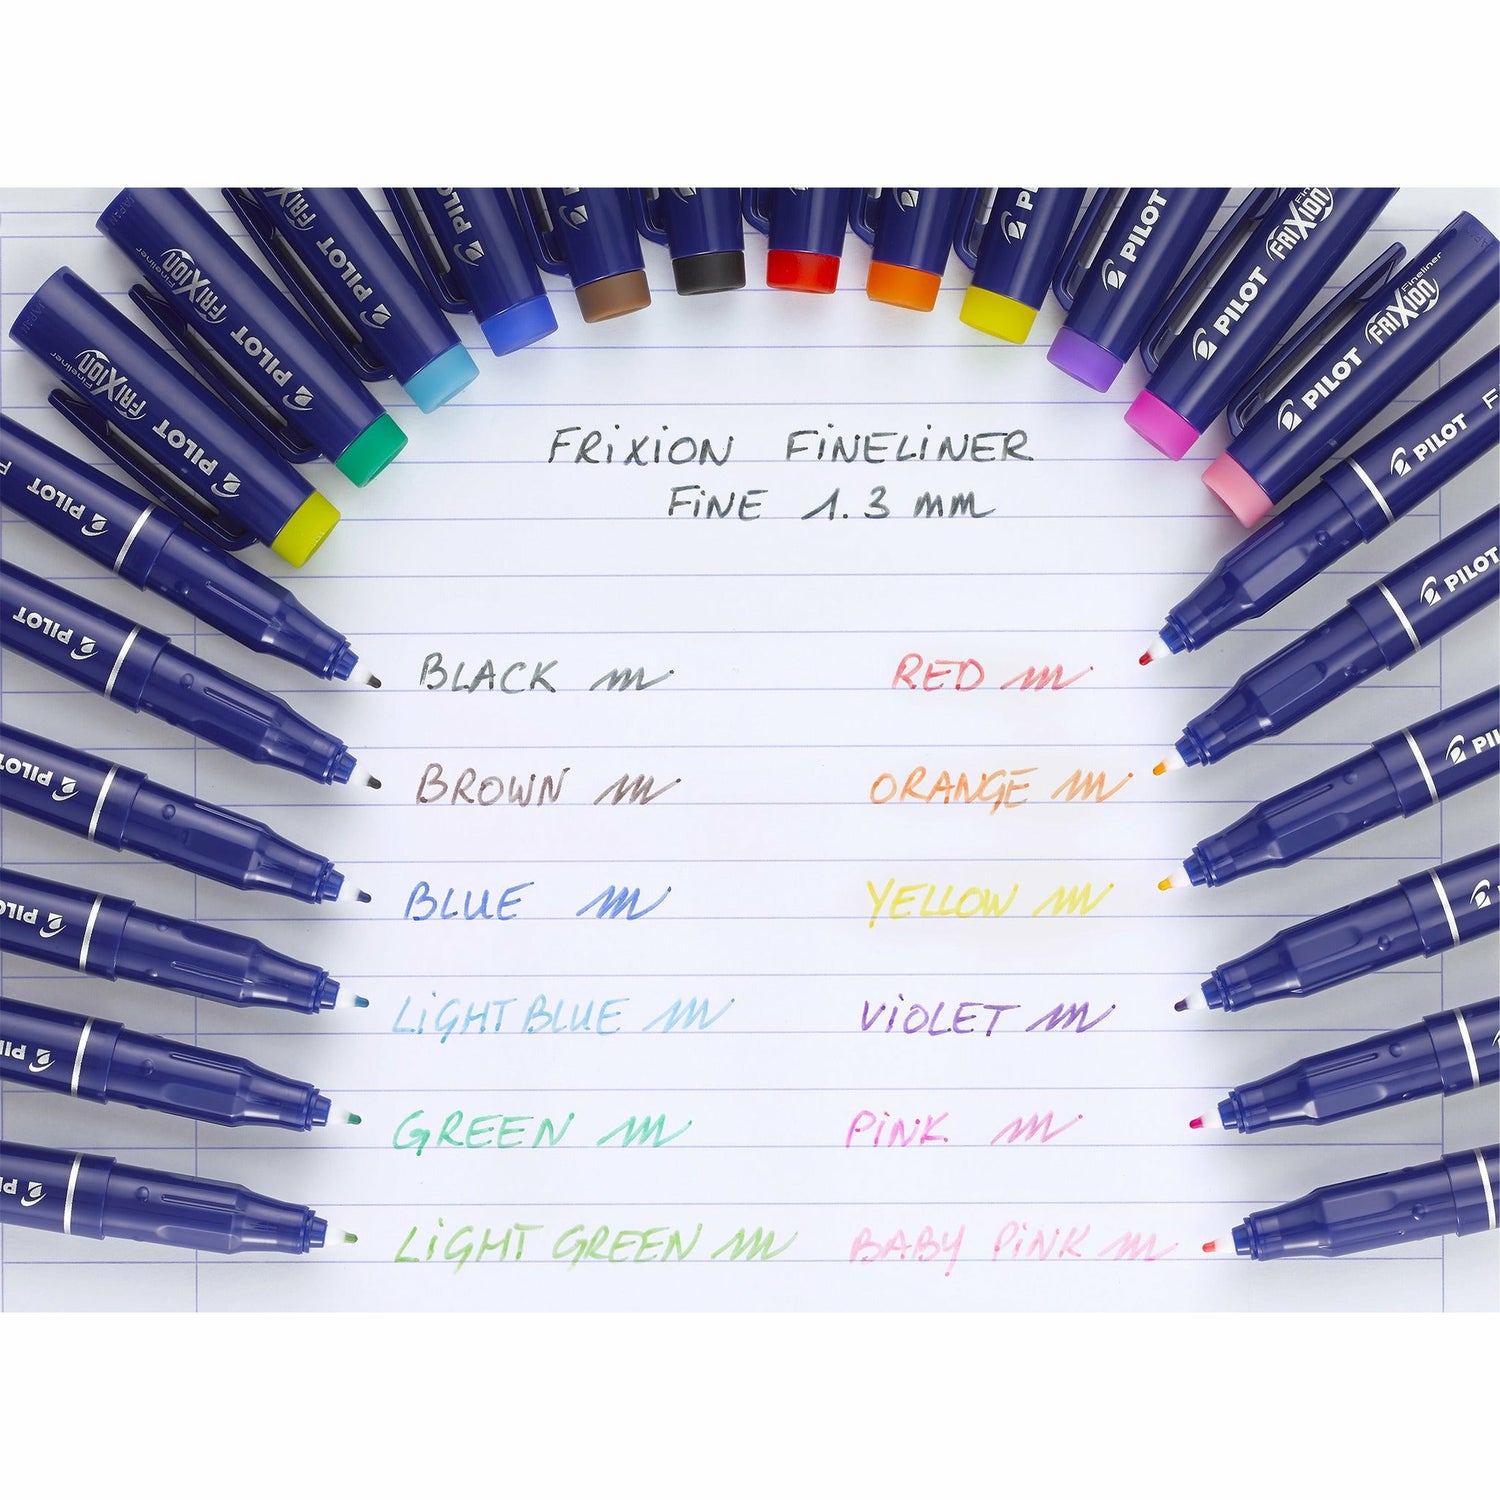 PILOT FRiXion Fineliner
PILOT FRiXion Fineliner
PILOT FRiXion
PILOT
PILOT
PILOT FRiXion Fine
PILOT FRiXion Fineliner
PILOT F
PILOT
PILOT
PILOT
PILOT
FRiXiON FiNELiNER
FiNE 1.3 mm
BLACK
RED
BROWN
ORANGE
BLUE
YELLOW
LiGHT BLUE
ViOLET
GREEN
PiNK
LiGHT GREEN
BABY PiNK